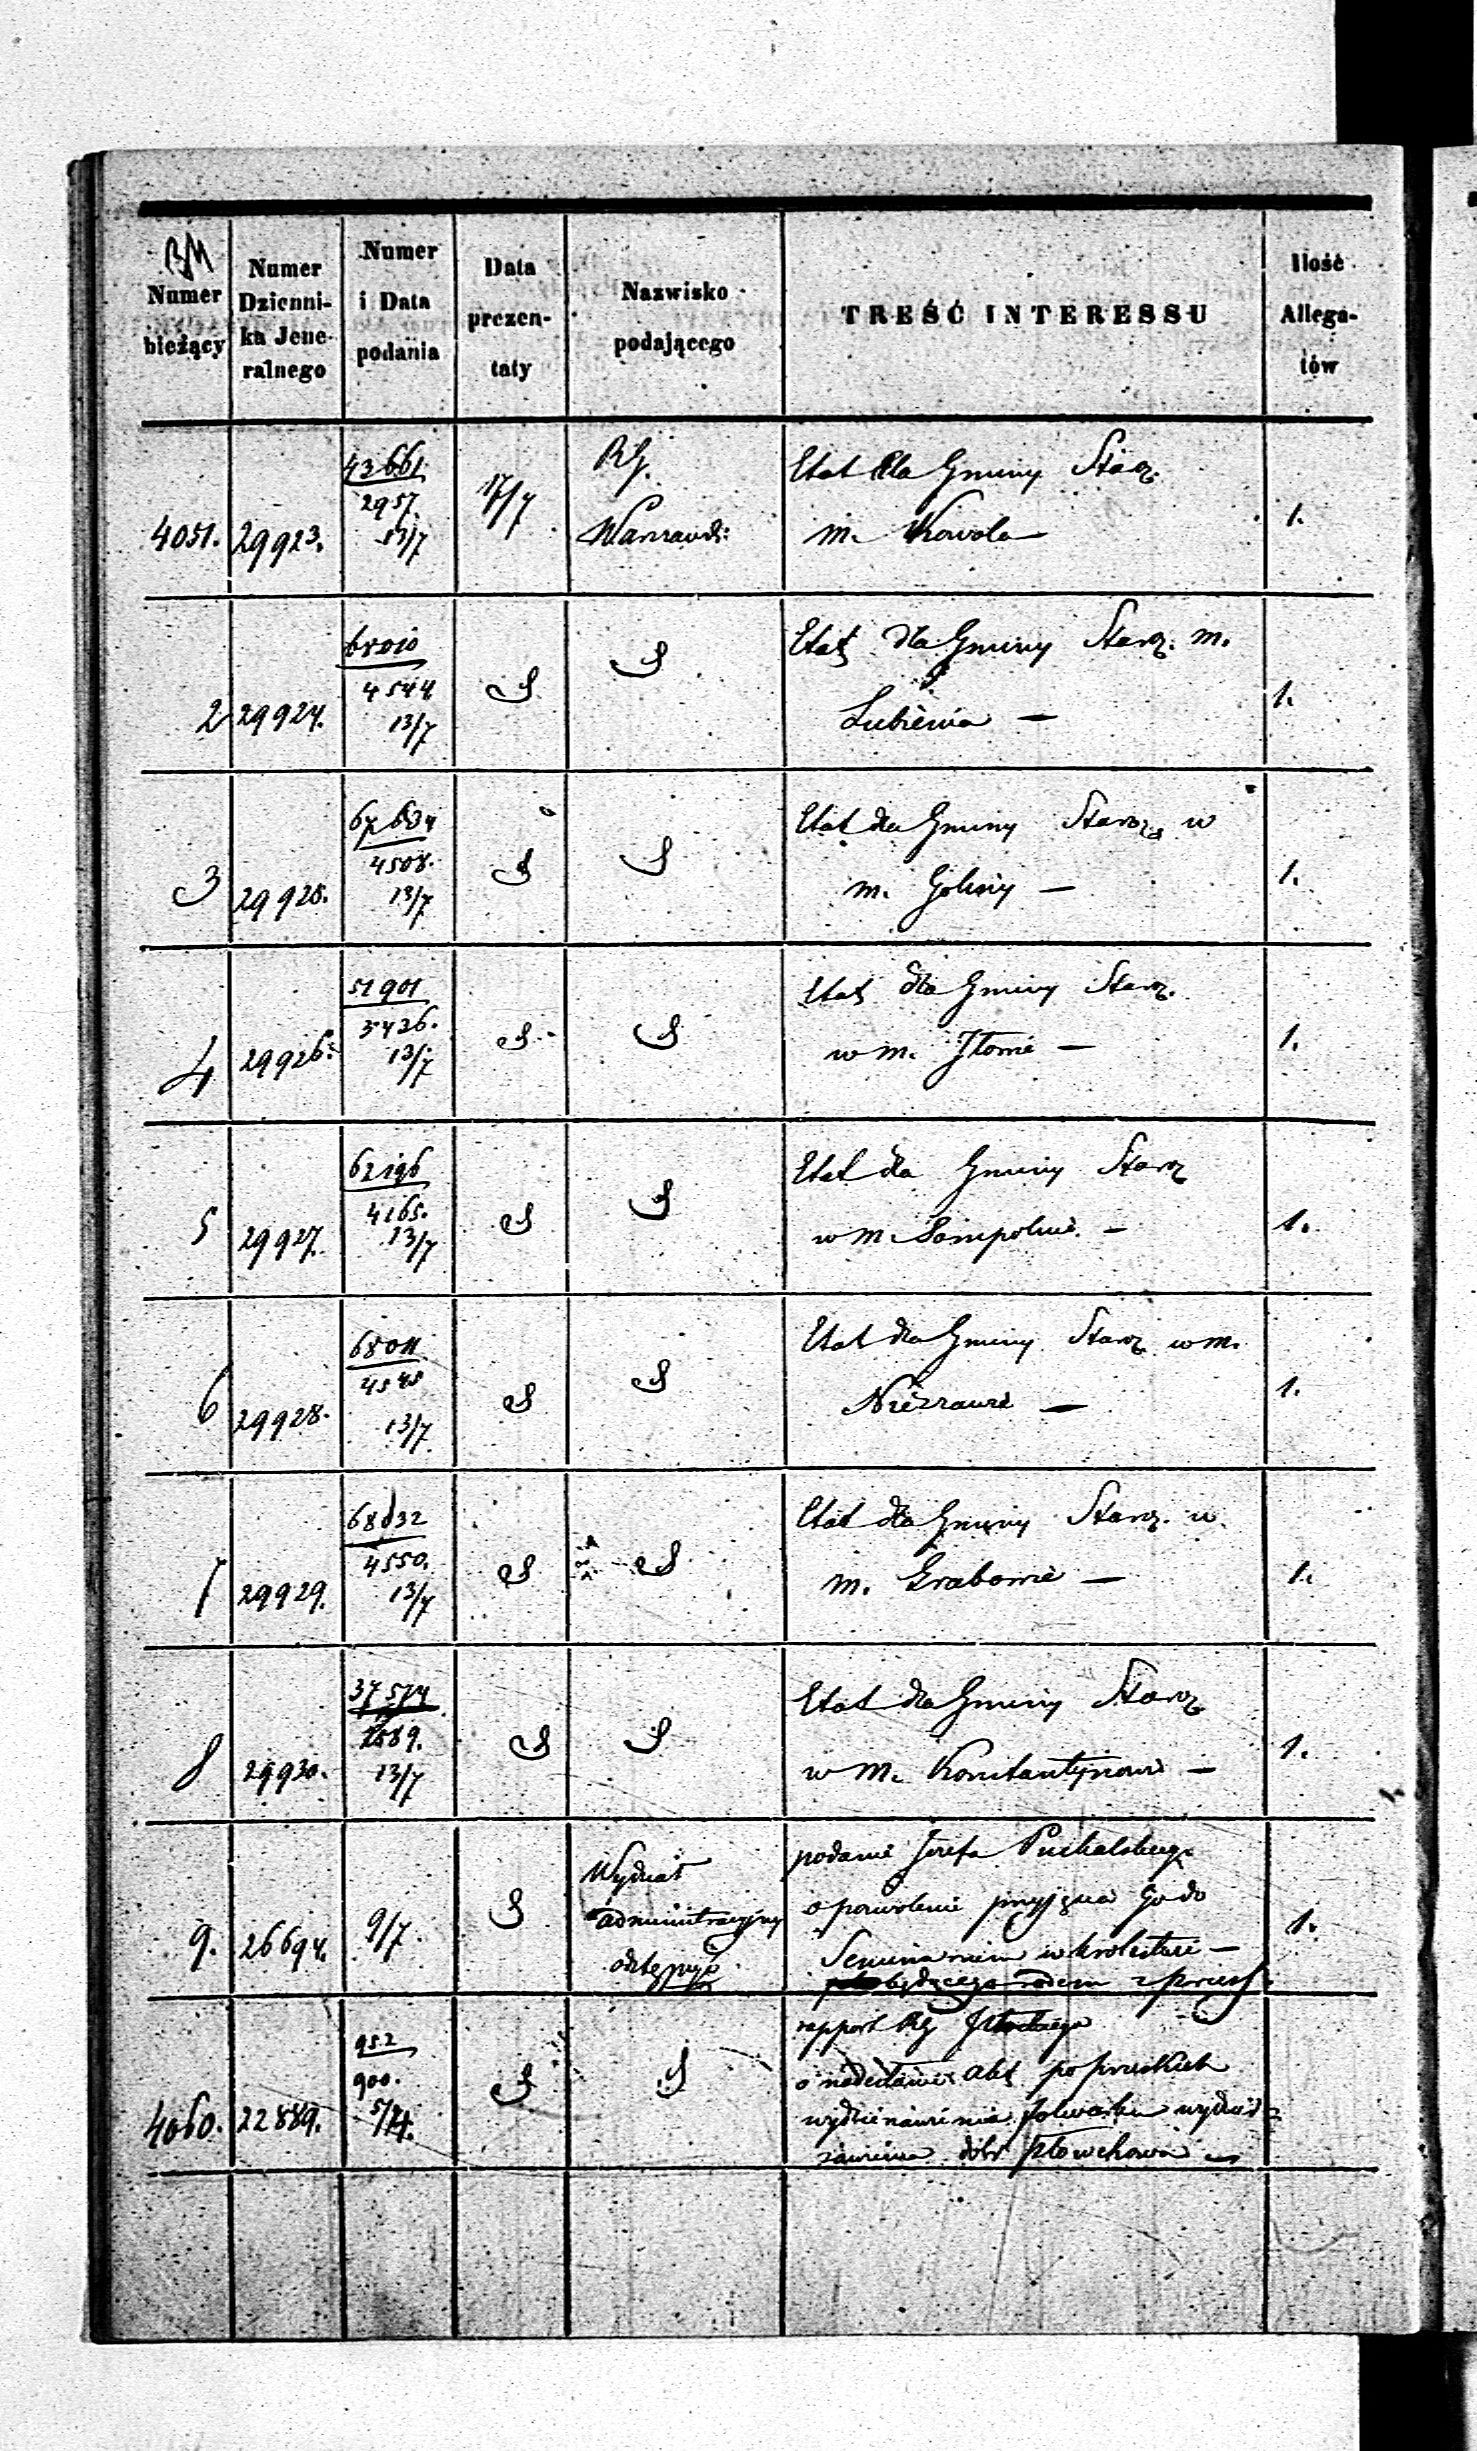 BM
Numer
bieżący
Numer
Dzienni-
ka Jene-
ralnego
Numer
i Data
podania
Data
prezen-
taty
Nazwisko
podającego
TREŚĆ INTERESSU
Ilość
Allega-
tów
4051. 29923. 43661
2957.
13/7
17/7
RG.
Warszawsk:
Etat dla Gminy Staroz.
m. Kowala
1.
2 29924. 68010
4544.
13/7
S S
Etat dla Gminy Staroz. m.
Lubienia —
1.
3 29925. 67634
4508.
13/7
S S
Etat dla Gminy Staroz. w
m. Goliny —
1.
4 29926. 51901
3426.
13/7
S S
Etat dla Gminy Staroz.
w m. Iłowie —
1.
5 29927. 62196
4165.
13/7
S S
Etat dla Gminy Staroz
w m. Sompolnie. —
1.
6 29928. 68011
4545
13/7
S S
Etat dla Gminy Staroz w m.
Nieszawie —
1.
7 29929. 68032
4550.
13/7
S S
Etat dla Gminy Staroz. w.
m. Grabowie —
1.
8 29930. 37574
2589.
13/7
S S
Etat dla Gminy Staroz
w m. Konstantynowie —
1.
9. 26694. 9/7. S
Wydział
administracyjny
odstępuje
podanie Józefa Puchalskiego
o pozwolenie przyjęcia Go do
Seminarium w
będącego rodem z Pruss.
1.
4060. 22889. 952
900.
5/
S S
rapport RG Płockiego
o nadesłanie akt po pruskich
wydzierżawienia folwarku
dóbr